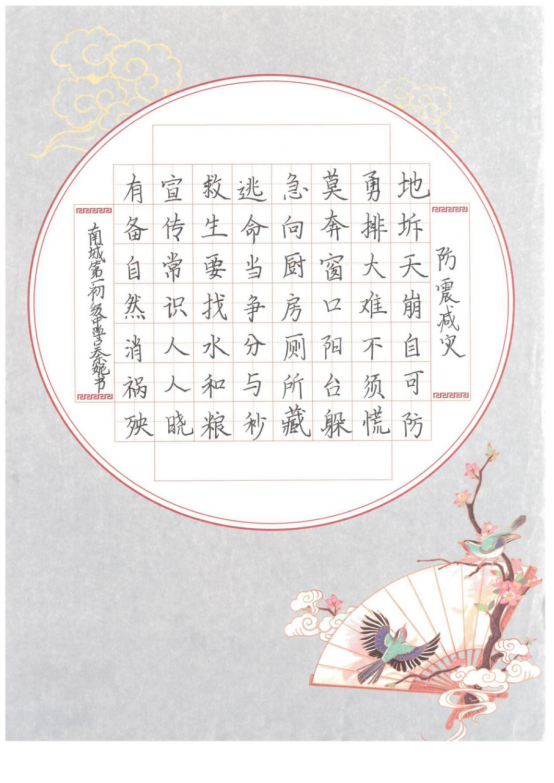 防震减灾
地坼天崩自可防
勇排大难不须慌
莫奔窗口阳台躲
急向厨房厕所藏
逃命当争分与秒
救生要找水和粮
宣传常识人人晓
有备自然消祸殃
南城第一初级中学秦皖书